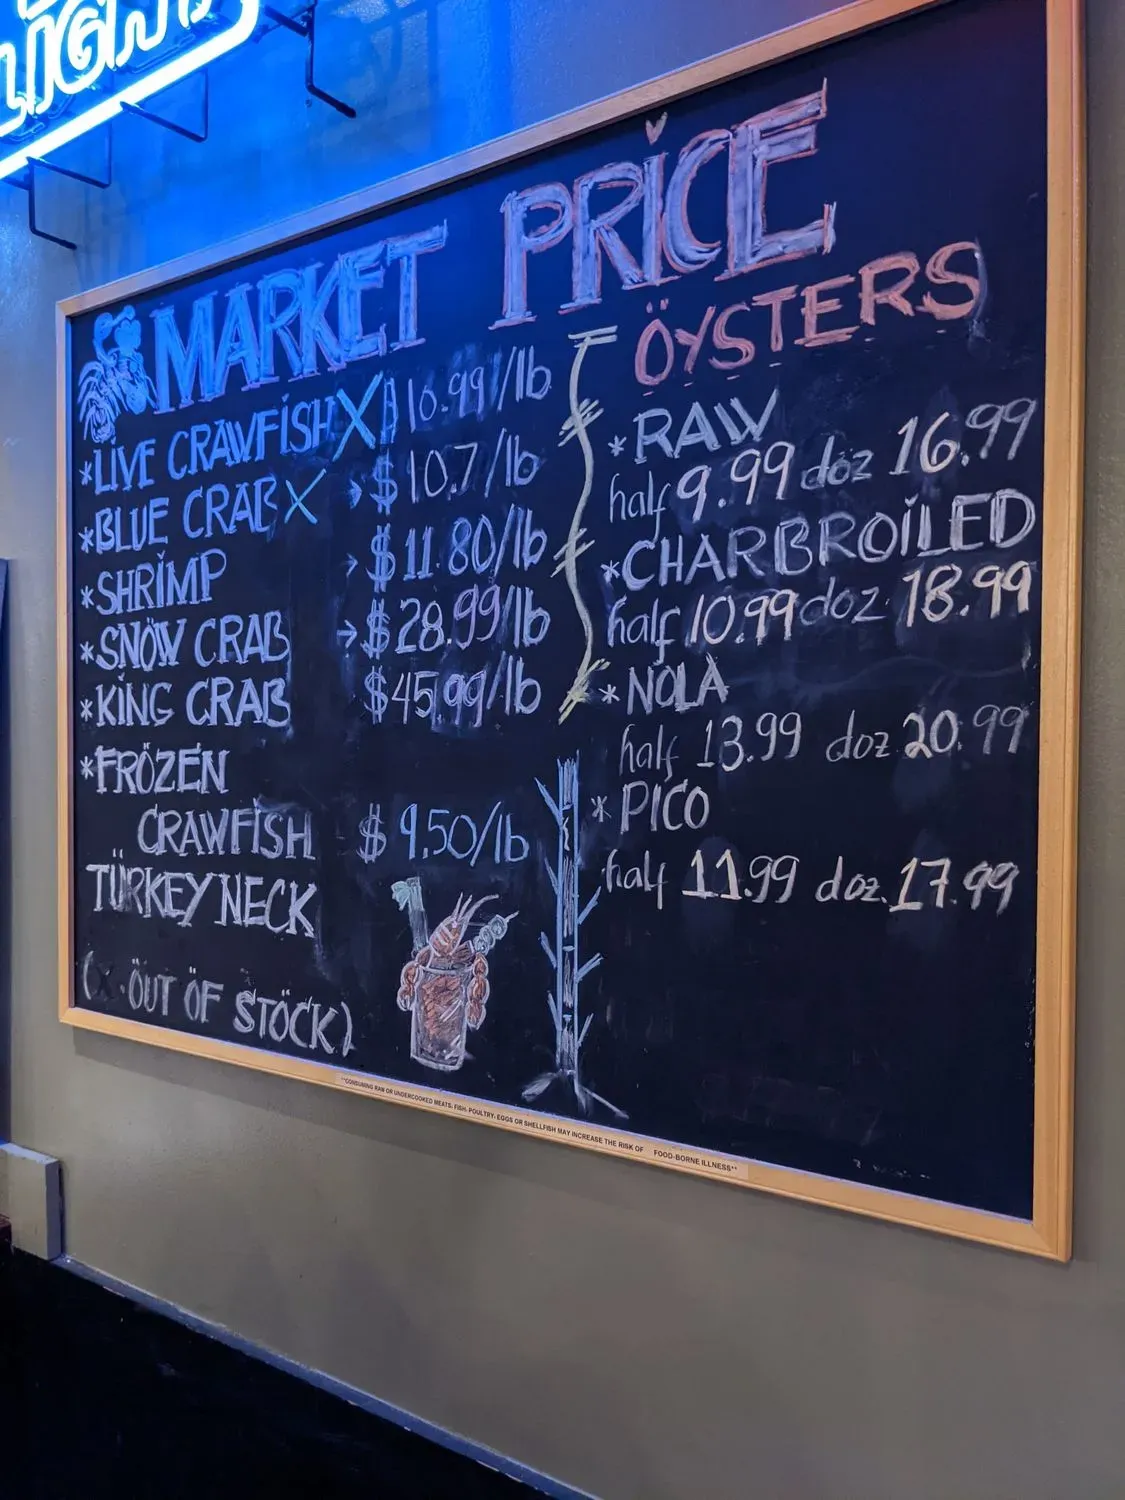 LIGHT
MARKET PRICE
*LIVE CRAWFISH X 10.99/lb
*BLUE CRAB X $10.7/lb
*SHRIMP $11.80/lb
*SNOW CRAB $28.99/lb
*KING CRAB $45.99/lb
*FROZEN
CRAWFISH $9.50/lb
TURKEY NECK
(X. OUT OF STOCK)
ÖYSTERS
*RAW
half 9.99 doz 16.99
*CHARBROILED
half 10.99 doz 18.99
*NOLA
half 13.99 doz 20.99
*PICO
half 11.99 doz. 17.99
**CONSUMING RAW OR UNDERCOOKED MEATS, FISH, POULTRY, EGGS OR SHELLFISH MAY INCREASE THE RISK OF FOOD-BORNE ILLNESS**